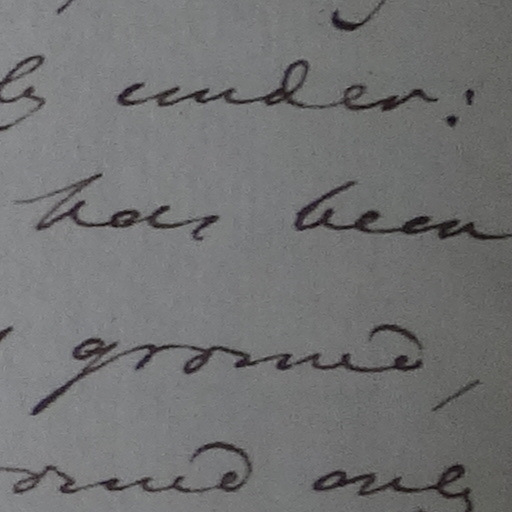 ly under:
has been
ground,
ound only